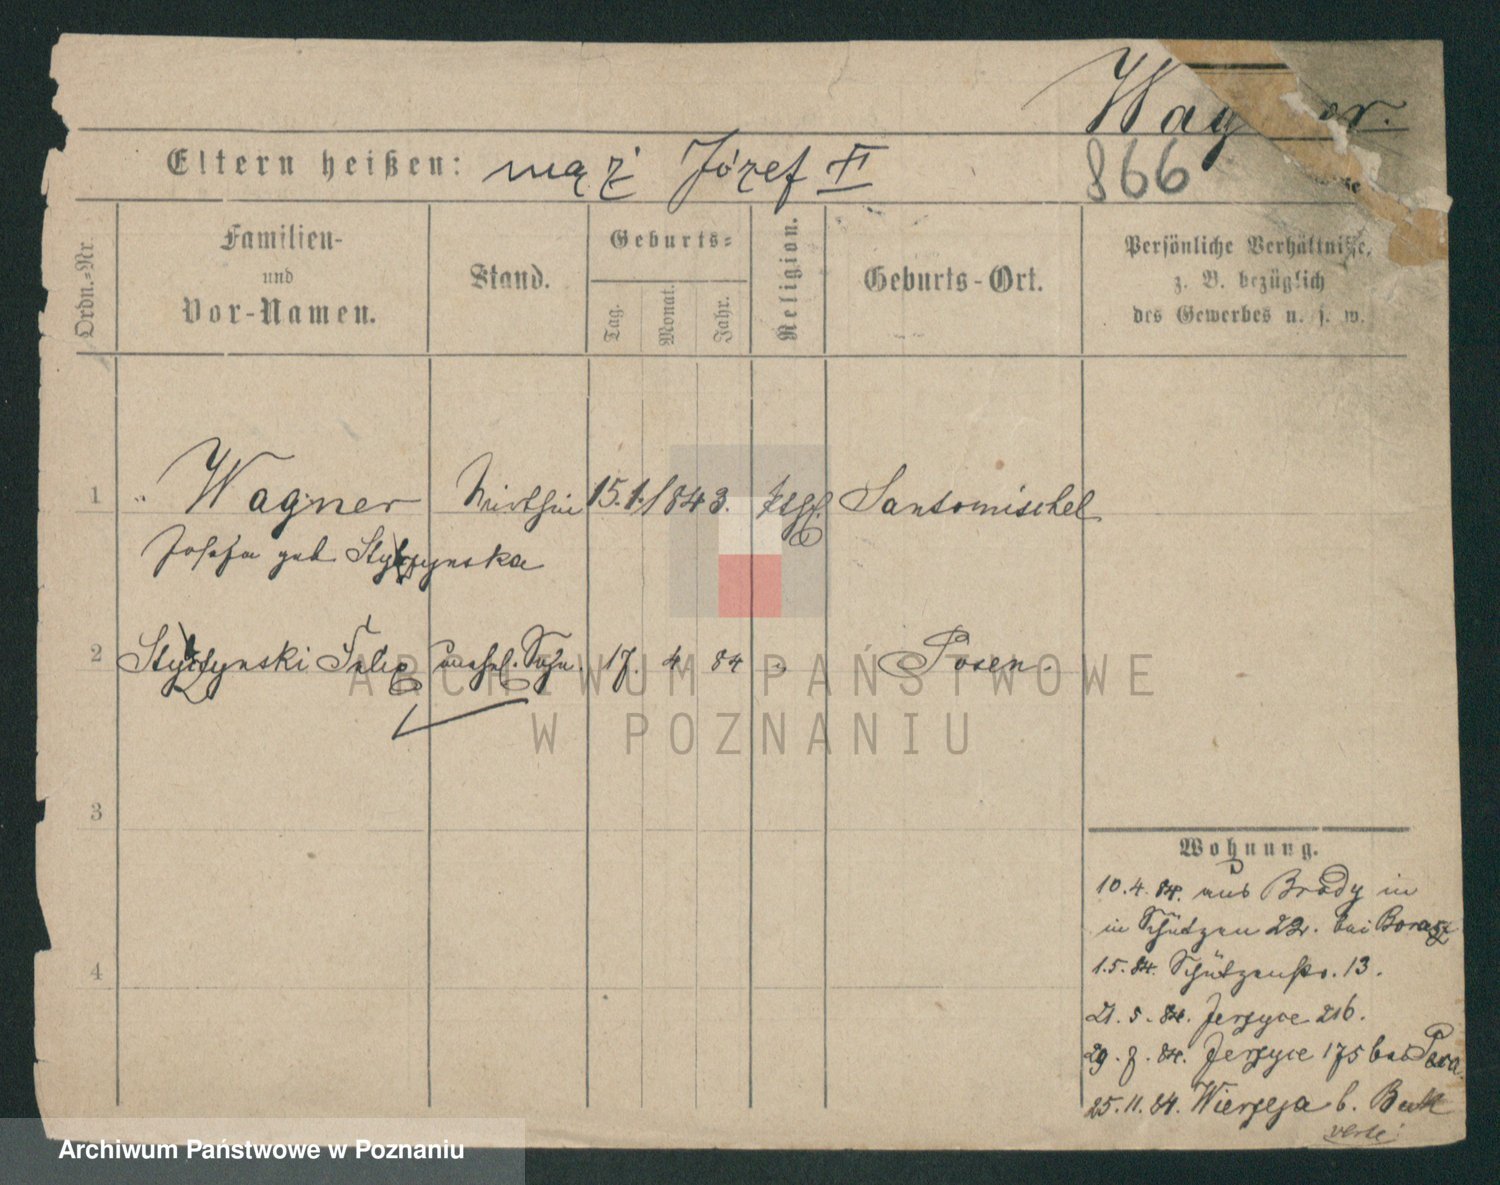 Wagner.
Eltern heißen: mąż Józef II
866
Ordn.-Nr.
Familien-
und
Vor-Namen.
Stand.
Geburts-
Tag.
Monat.
Jahr.
Religion.
Geburts-Ort.
Persönliche Verhältnisse,
z. B. bezüglich
des Gewerbes u. s. w.
1 Wagner Wirthin 15. 1. 1843. ktgl. Santomischel
Josefa geb
2 Felix unehel. Sohn. 17. 4 84 " Posen.
3
4
Wohnung.
10. 4. 84. aus Brody in
in Schützen 22. bei
1. 5. 84. Schützenstr. 13.
21. 5. 84. Jerzyce 216.
29. 7. 84. Jerzyce 175 bei
25. 11. 84. b. Buk
verte
ARCHIWUM PAŃSTWOWE
W POZNANIU
Archiwum Państwowe w Poznaniu